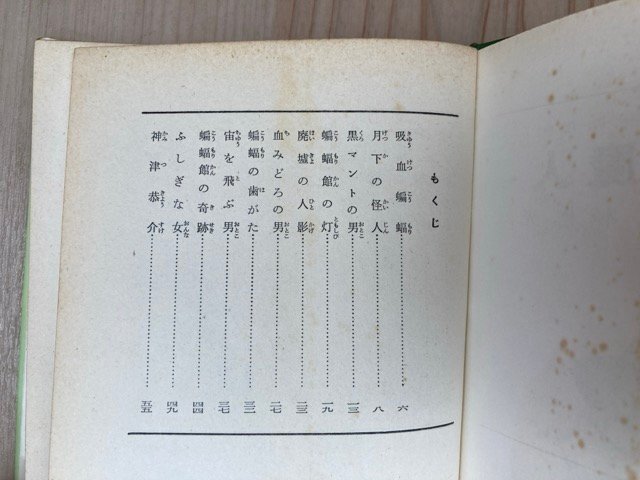 もくじ
吸血蝙蝠……六
月下の怪人……八
黒マントの男……一三
蝙蝠館の灯……一九
廃墟の人影……二三
血みどろの男……二七
蝙蝠の歯がた……三二
宙を飛ぶ男……三七
蝙蝠館の奇跡……四四
ふしぎな女……四九
神津恭介……五五